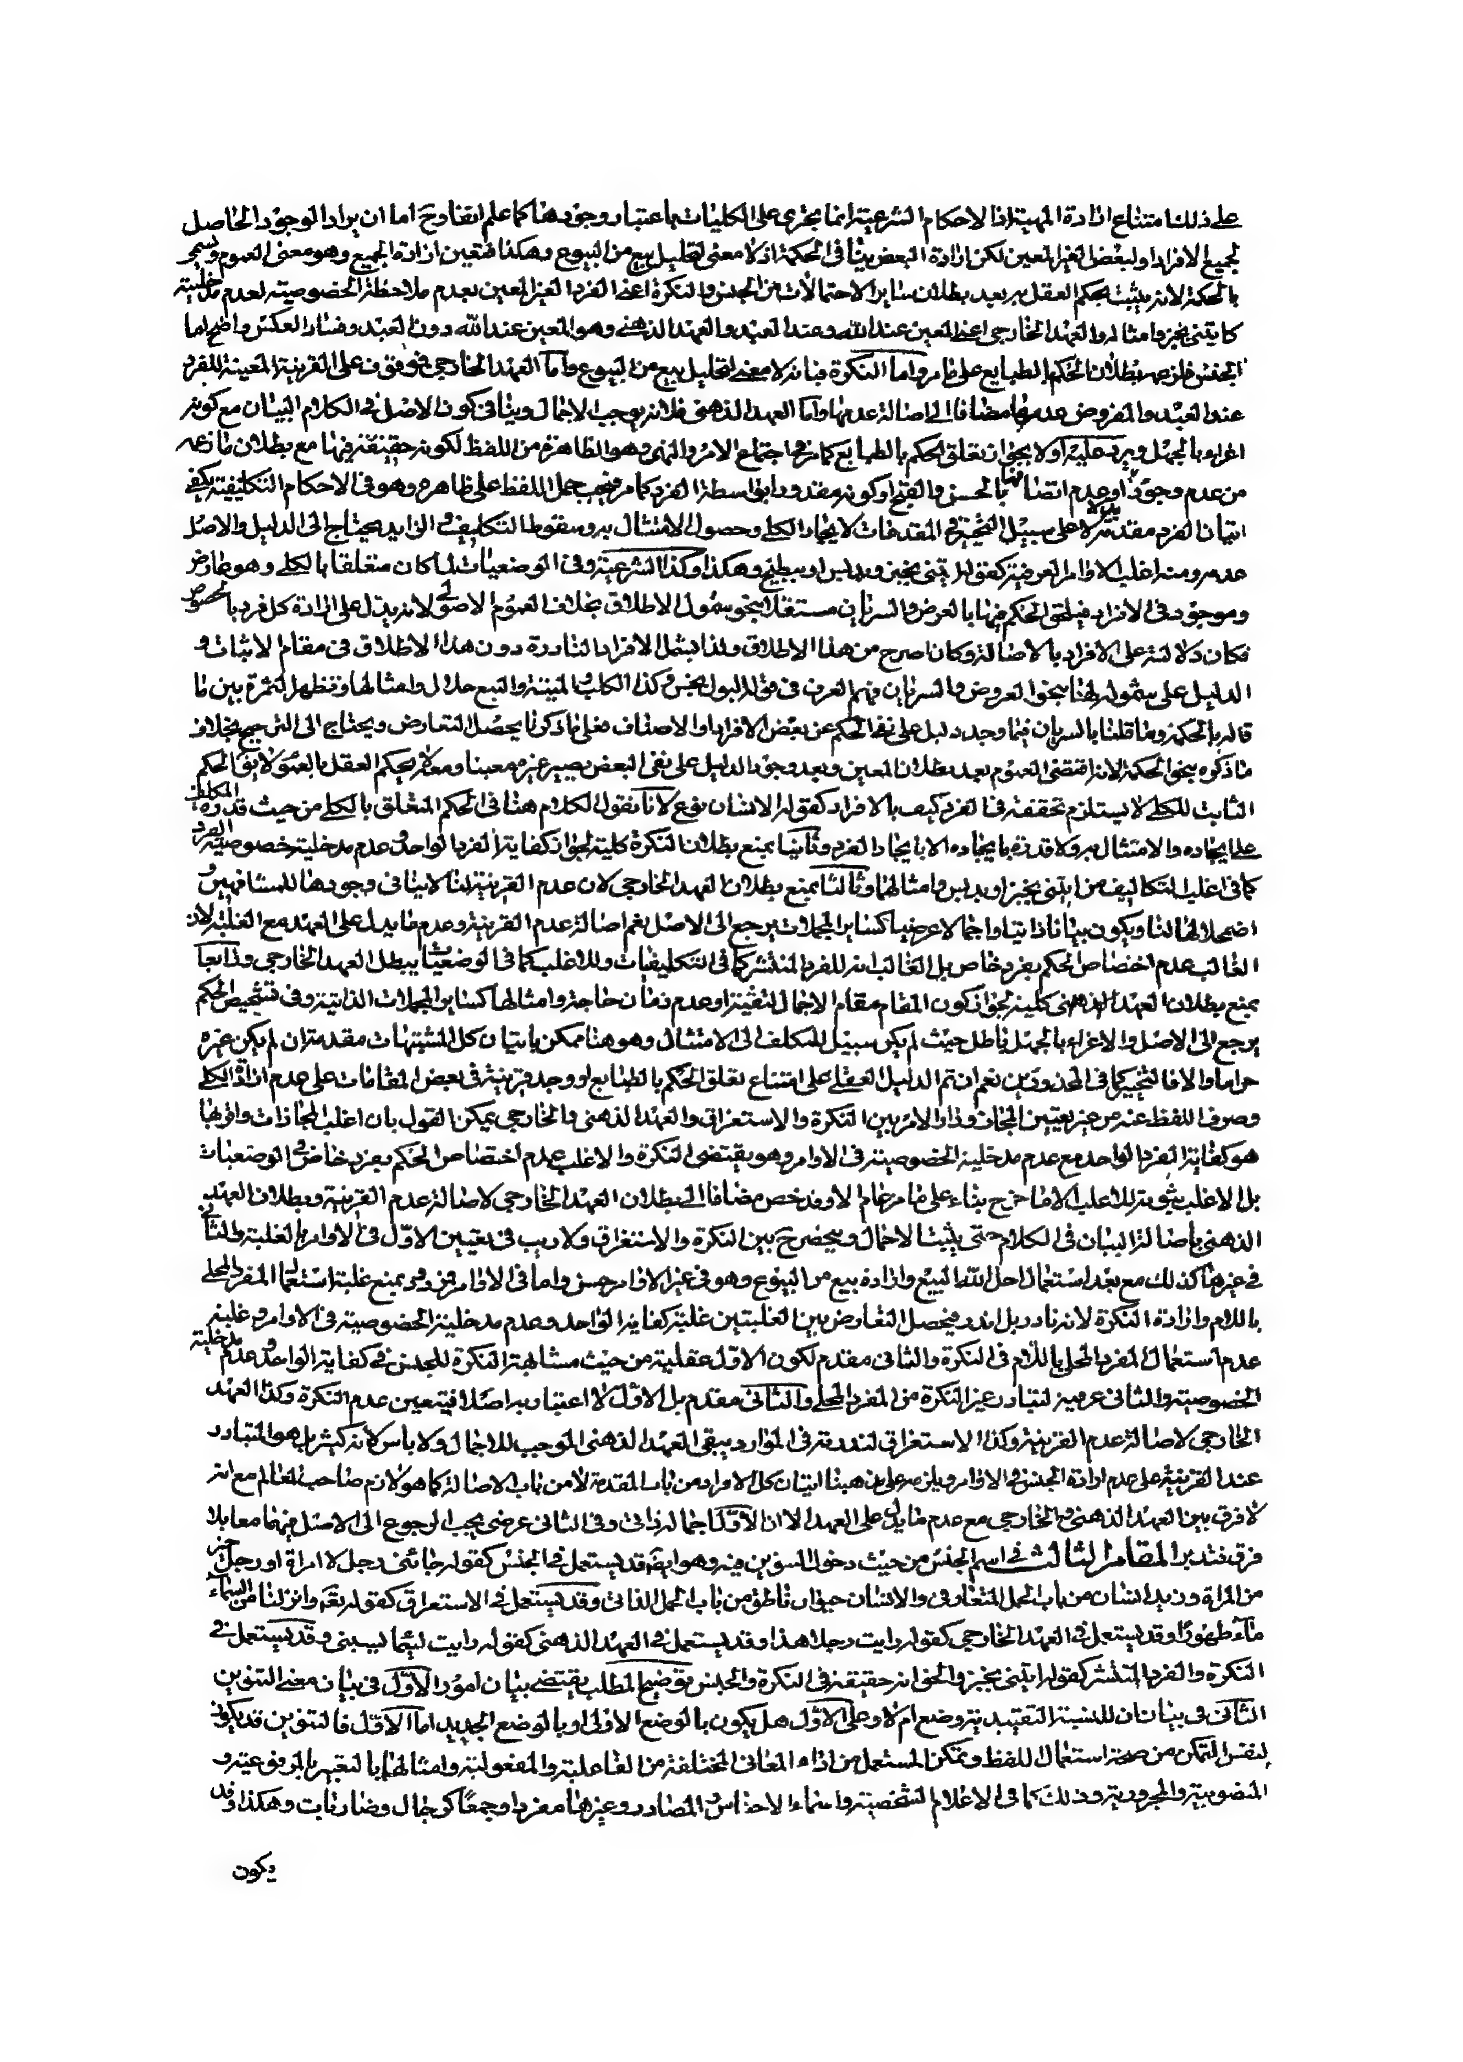 على ذلك امتناع ارادة المهية اذ الاحكام الشرعية انما يجرى على الكليات باعتبار وجودها كما علم انفا وح اما ان يراد الوجود الحاصل
لجميع الافراد او لبعض الغير المعين لكن ارادة البعض ينافى الحكمة اذ لا معنى لتحليل بيع من البيوع وهكذا فتعين ارادة الجميع وهو معنى العموم
بالحكمة لانه يثبت بحكم العقل به بعد بطلان ساير الاحتمالات من الجنس والنكرة اعنى الفرد الغير المعين بعدم ملاحظة الخصوصية لعدم مدخلية
كايتنى بخبز وامثاله والعهد الخارجى اعنى المعين عند الله وعند العبد والعهد الذهنى وهو المعين عند الله دون العبد وفساد العكس واضح اما
الجنس فلزعمه بطلان الحكم بالطبايع على ما مر واما النكرة فبانه لا معنى لتحليل بيع من البيوع واما العهد الخارجى فموقوف على القرينة المعينة للفرد
عند العبد والمفروض عدمها مضافا الى اصالة عدمها واما العهد الذهنى فلانه يوجب الاجمال وينافى كون الاصل فى الكلام البيان مع كونه
اغراء بالجهل ويرد عليه اولا بجواز تعلق الحكم بالطبايع كما مر فى اجتماع الامر والنهى وهو الظاهرة من اللفظ لكونه حقيقة فيها مع بطلان ما زعمه
من عدم وجودها وعدم اتصافها بالحسن والقبح او كونه مقدورا بواسطة الفرد كما مر فيجب حمل اللفظ على ظاهره وهو فى الاحكام التكليفية يكفى
اتيان الفرد مقدمة على سبيل التخيير فى المقدمات لايجاد الكلى وحصول الامتثال به وسقوط التكليف فى الزايد يحتاج الى الدليل والاصل
عدمه ومنه اغلب الاوامر العرفية كقوله ايتنى بخبز وبدبس او ببطيخ وهكذا وكذا الشرعية وفى الوضعيات لما كان متعلقا بالكلى وهو
وموجود فى الافراد فيلقى الحكم فيها بالعرض والسريان مستقلا بنحو شمول الاطلاق بخلاف العموم الاصولى لانه يدل على ارادة كل فرد بالخصوص
فكان دلالته على الافراد بالاصالة وكان اصرح من هذا الاطلاق ولذا يشمل الافراد النادرة دون هذا الاطلاق فى مقام الاثبات و
الدليل على شموله لهنا بنحو العروض والسريان فهم العرف فى قوله البول نجس وكذا الكلب والميتة والبيع حلال وامثالها وتظهر الثمرة بين ما
قاله بالحكمة وما قلنا بالسريان فيما وجد دليل على نفى الحكم عن بعض الافراد او الاصناف فعلى ما ذكرنا يحصل التعارض ويحتاج الى الترجيح بخلاف
ما ذكره بنحو الحكمة لانه اقتضى العموم بعد بطلان المعين وبعد وجود الدليل على نفى البعض يصير غيره معينا ومعه لا يحكم العقل بالعموم لا يق الحكم
الثابت للكلى لا يستلزم تحققه فى الفرد كيف بالافراد كقوله الانسان نوع لانا نقول الكلام هنا فى الحكم المتعلق بالكلى من حيث قدرة المكلف
على ايجاده والامتثال به ولا قدرة بايجاده الا بايجاد الفرد وثانيا يمنع بطلان النكرة كلية لجواز كفاية الفرد الواحد وعدم مدخلية خصوصية الفرد
كما فى اغلب التكاليف من ايتنى بخبز او بدبس وامثالها وثالثا يمنع بطلان العهد الخارجى لان عدم القرينة لنا لا ينافى وجودها للمشافهين و
اضمحلالها لنا ويكون بيانا ذاتيا واجمالا عرضيا كساير المجملات يرجع الى الاصل نعم اصالة عدم القرينة وعدم ما يدل على العهد مع الغلبة لان
الغالب عدم اختصاص الحكم بفرد خاص بل الغالب انه للفرد المنتشر كما فى التكليفيات وللاغلب كما فى الوضعيات يبطل العهد الخارجى ورابعا
يمنع بطلان العهد الذهنى كلية لجواز كون المقام مقام الاجمال لتقية او عدم زمان حاجة وامثالها كساير المجملات الذاتية وفى تشخيص الحكم
يرجع الى الاصل والاغراء بالجهل باطل حيث لم يكن سبيل للمكلف الى الامتثال وهو هنا ممكن باتيان كل المشتبهات مقدمة ان لم يكن غيره
حراما والا فالتخيير كما فى المحذورين نعم ان تم الدليل العقلى على امتناع تعلق الحكم بالطبايع او وجد قرينة فى بعض المقامات على عدم ارادة الكلى
وصرف اللفظ عنه من غير تعيين المجاز ودار الامر بين النكرة والاستغراق والعهد الذهنى والخارجى يمكن القول بان اغلب المجازات واقربها
هو كفاية الفرد الواحد مع عدم مدخلية الخصوصية فى الاوامر وهو يقتضى النكرة والاغلب عدم اختصاص الحكم بفرد خاص فى الوضعيات
بل الاغلب ثبوته للاغلب الا ما خرج بناء على ما مر عام الا وقد خص مضافا الى بطلان العهد الخارجى لاصالة عدم القرينة وبطلان العهد
الذهنى باصالة البيان فى الكلام حتى يثبت الاجمال وينحصر ح بين النكرة والاستغراق ولا ريب فى تعيين الاول فى الاوامر بالغلبة والثانى
فى غيرها كذلك مع بعد استعمال احل الله البيع وارادة بيع من البيوع وهو فى غير الاوامر حسن واما فى الاوامر فمردود بمنع غلبة استعمال المفرد المحلى
باللام وارادة النكرة لانه نادر بل اندر فيحصل التعارض بين الغلبتين غلبة كفاية الواحد وعدم مدخلية الخصوصية فى الاوامر وغلبة
عدم استعمال المفرد المحلى باللام فى النكرة والثانى مقدم لكون الاول عقلية من حيث مشابهة النكرة للجنس فى كفاية الواحد وعدم مدخلية
الخصوصية والثانى عرفية لتبادر غير النكرة من المفرد المحلى والثانى مقدم بل الاول لا اعتبار به اصلا فيتعين عدم النكرة وكذا العهد
الخارجى لاصالة عدم القرينة وكذا الاستغراق لندرته فى الموارد يبقى العهد الذهنى الموجب للاجمال ولا باس كانه كثير بل هو المتبادر
عند القرينة على عدم ارادة الجنس فى الاوامر ويلزمه على مذهبنا اتيان كل الافراد من باب المقدمة لا من باب الاصالة كما هو لازم صاحب المعالم مع انه
لا فرق بين العهد الذهنى والخارجى مع عدم ما يدل على العهد الا ان الاول اجماله ذاتى وفى الثانى عرضى يجب الرجوع الى الاصل فيهما معا بلا
فرق فتدبر المقام الثالث فى اسم الجنس من حيث دخول التنوين فيه وهو ايضا قد يستعمل فى الجنس كقوله جائنى رجل لا امراة او رجل خير
من المراة وزيد انسان من باب الحمل المتعارفى والانسان حيوان ناطق من باب الحمل الذاتى وقد يستعمل فى الاستغراق كقوله تعالى وانزلنا من السماء
ماء طهورا وقد يستعمل فى العهد الخارجى كقوله رايت رجلا هذا وقد يستعمل فى العهد الذهنى كقوله رايت لئيما يسبنى وقد يستعمل فى
النكرة والفرد المنتشر كقوله ايتنى بخبز والحق انه حقيقة فى النكرة والجنس وتوضيح المطلب يقتضى بيان امور الاول فى بيان معنى التنوين
الثانى فى بيان ان للنسبة التقييدية وضع ام لا وعلى الاول هل يكون بالوضع الاولى او بالوضع الجديد اما الاول فالتنوين قد يكون
لنفس التمكن من صحة استعمال اللفظ وتمكن المستعمل من اداء المعانى المختلفة من الفاعلية والمفعولية وامثالها بالتعبير بالمرفوعية و
المنصوبية والمجرورية وذلك كما فى الاعلام الشخصية واسماء الاجناس والمصادر وغيرها مفردا وجمعا كرجال وضاربات وهكذا وقد
يكون